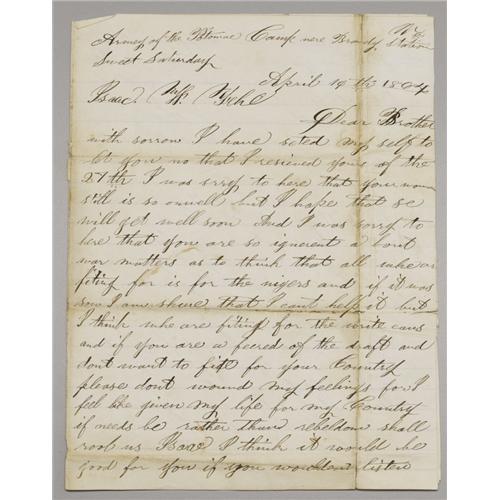 Army of the Potomac Camp nere Brandy Station
Sweet Saturday
April 19th 1864
Isaac. W.
Dear Brother
with sorrow I have seted my self to
let you no that I resieved yours of the
27th I was srry to here that your woman
still is so onwell but I hape that se
will get well soon And I was sorry to
here that you are so ignerent a bout
war matters as to think that all whe are
fiting for is for the nigers and if it was
sow I am shure that I cant help it but
I think whe are fiting for the write caus
and if you are a feered of the draft and
dont want to fite for your Country
please dont wound my feelings for I
feel like given my life for my Country
if needs be rather than rebeldom shall
rool us Isaac I think it would be
good for you if you wouldent listen